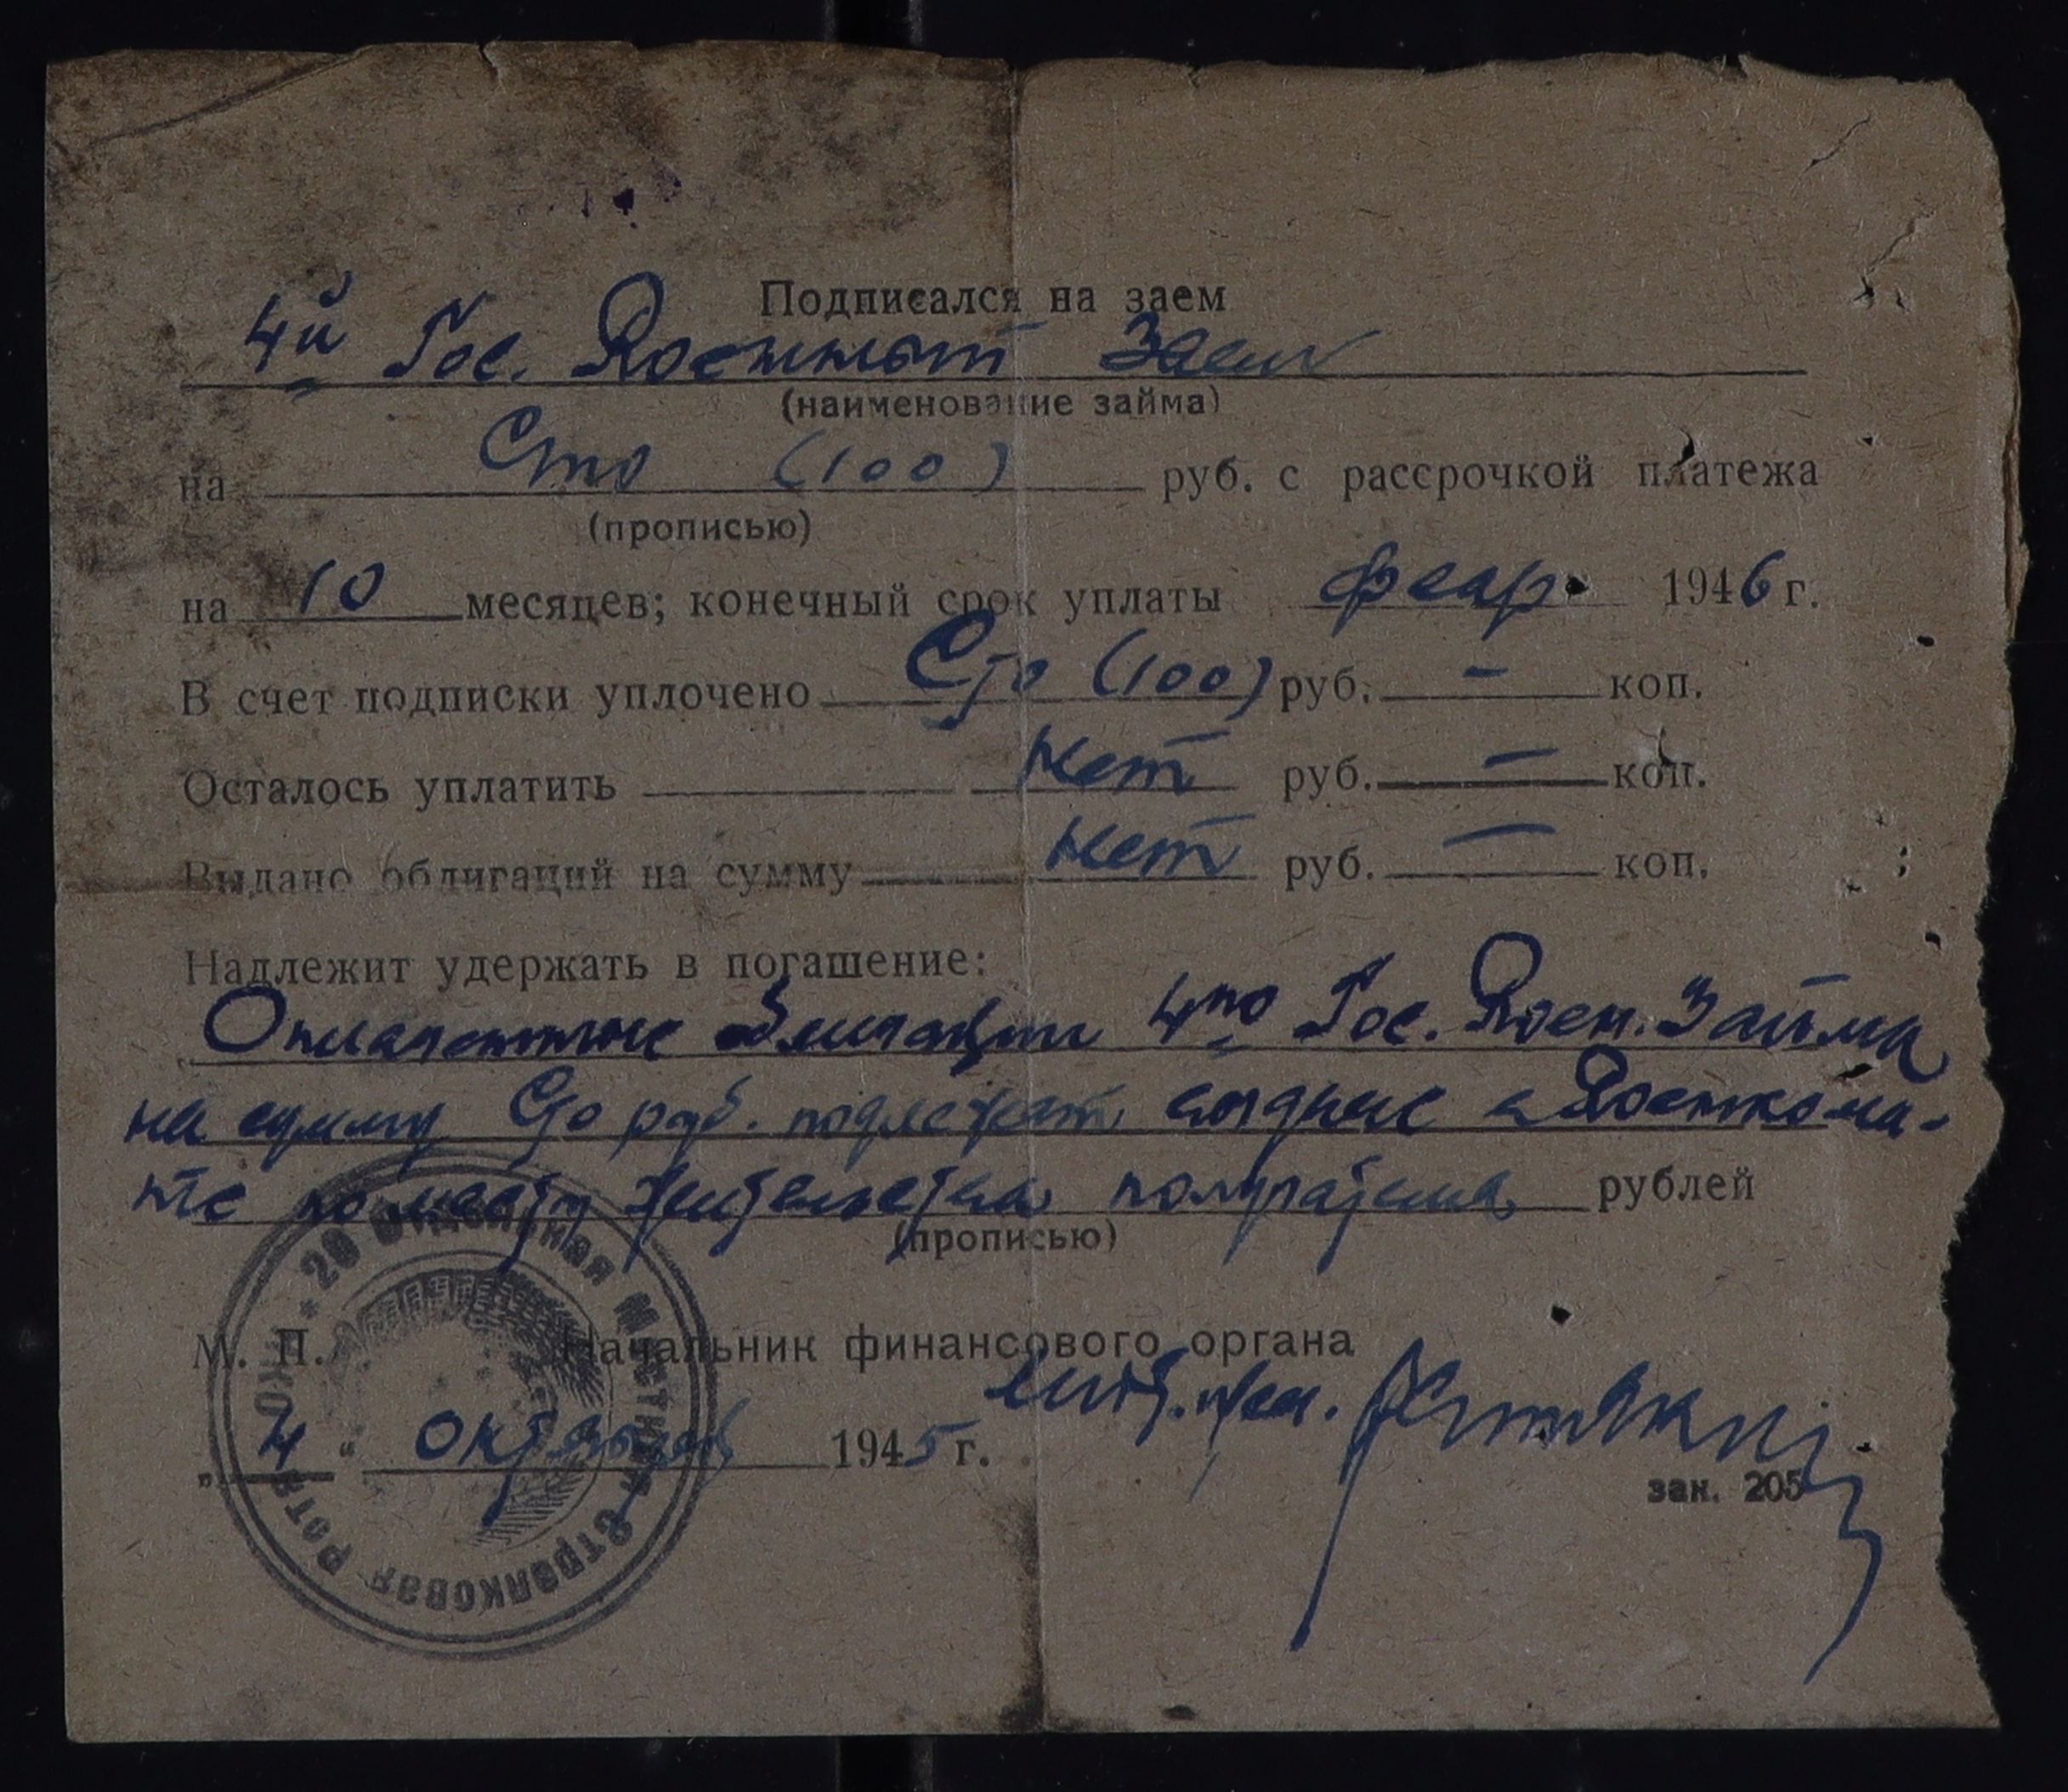 Подписался на заем
4й Гос. Военный Заем
(наименование займа)
на Сто (100) руб. с рассрочкой платежа
(прописью)
на 10 месяцев; конечный срок уплаты февр. 1946 г.
В счет подписки уплочено Сто (100) руб. – коп.
Осталось уплатить нет руб. – коп.
Выдано облигаций на сумму нет руб. – коп.
Надлежит удержать в погашение:
Оплаченные облигации 4го Гос. Воен. Займа
на сумму Сто руб. подлежат выдаче в Военкома-
те по месту жительства получателя рублей
(прописью)
* 20 Отдельная Местная Стрелковая Рота
М. П. Начальник финансового органа
„4“ октября 1945 г.
зак. 205